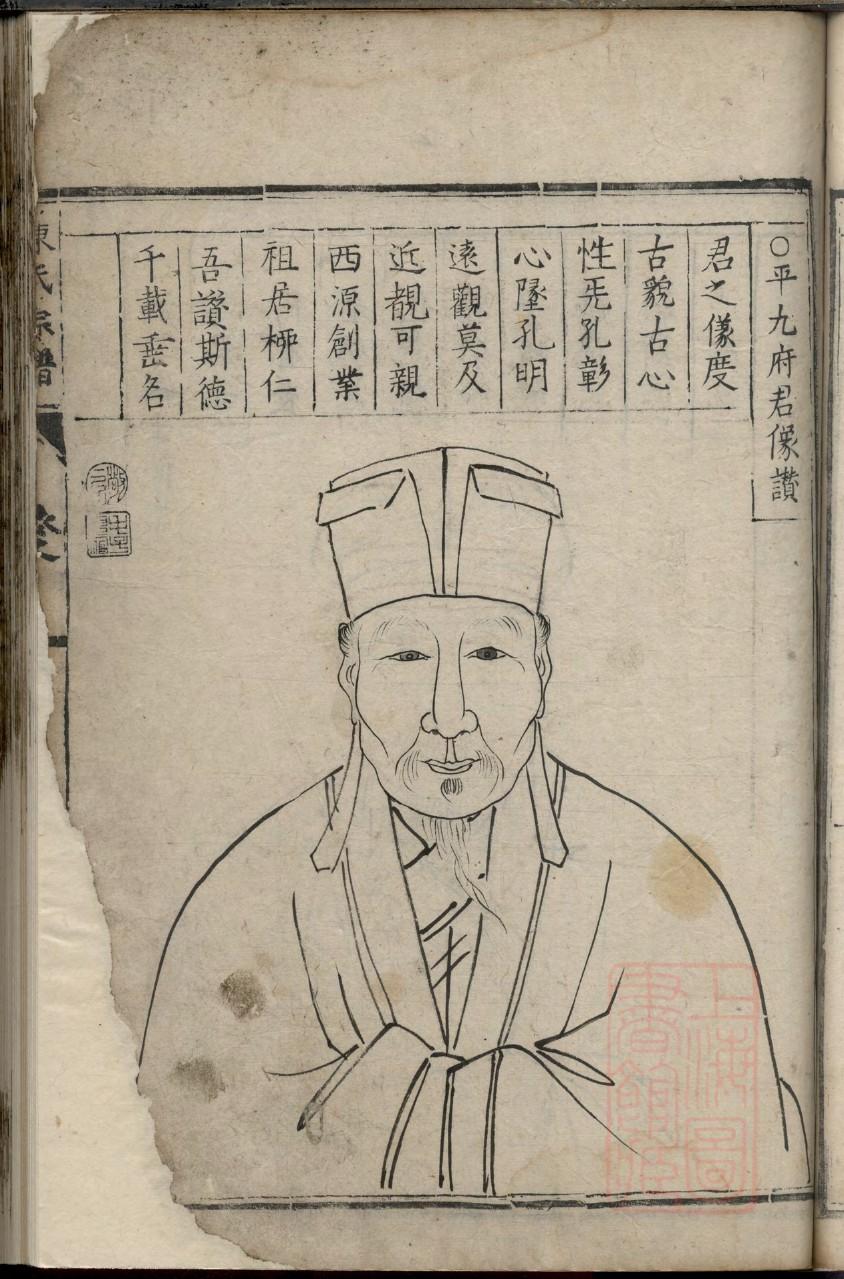 ○平九府君像讚
君之儀度
古貌古心
性兂孔彰
心墬孔明
遠觀莫及
近覩可親
西源創業
祖居栁仁
吾讚斯德
千載垂名
東氏宗譜
上海圖
書館藏